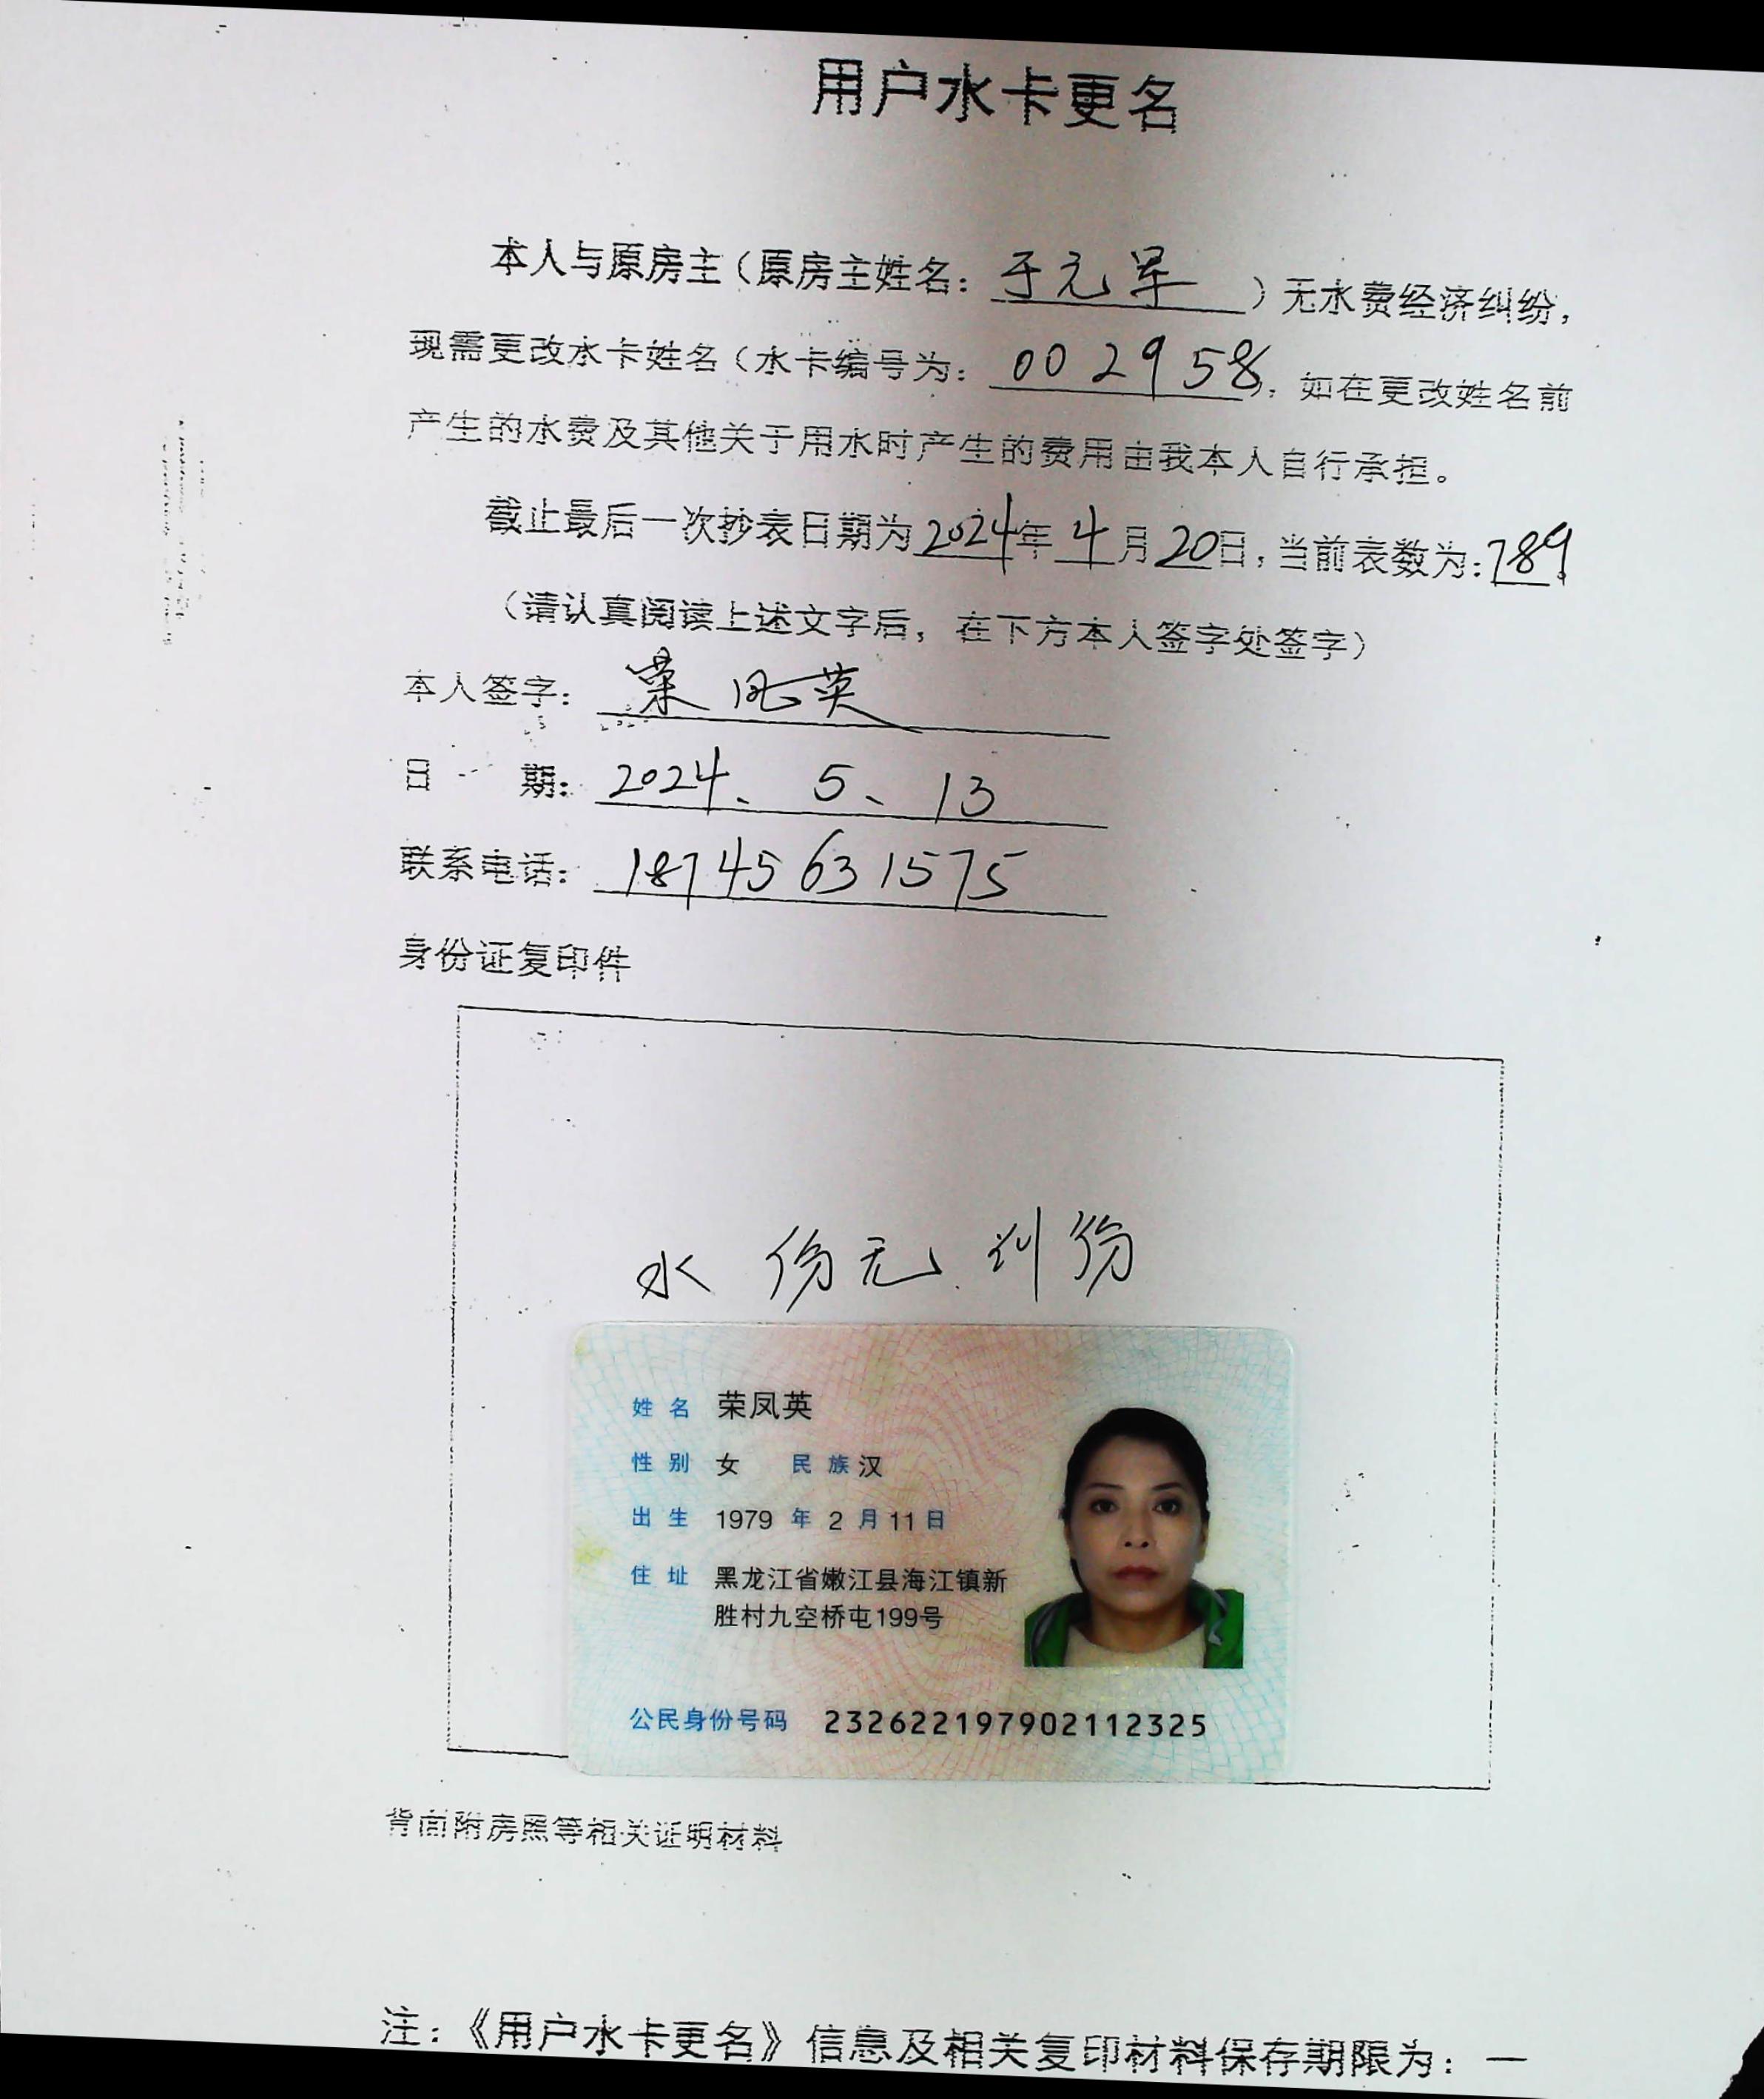 用户水卡更名
本人与原房主（原房主姓名：于元军）无水费经济纠纷，
现需更改水卡姓名（水卡编号为：002958），如在更改姓名前
产生的水费及其他关于用水时产生的费用由我本人自行承担。
截止最后一次抄表日期为2024年4月20日，当前表数为：789。
（请认真阅读上述文字后，在下方本人签字处签字）
本人签字：荣凤英
日期：2024、5、13
联系电话：18745631575
身份证复印件
水份无纠份
姓名 荣凤英
性别 女 民族 汉
出生 1979 年 2 月 11 日
住址 黑龙江省嫩江县海江镇新
胜村九空桥屯199号
公民身份号码 232622197902112325
背面附房照等相关证明材料
注：《用户水卡更名》信息及相关复印材料保存期限为：一